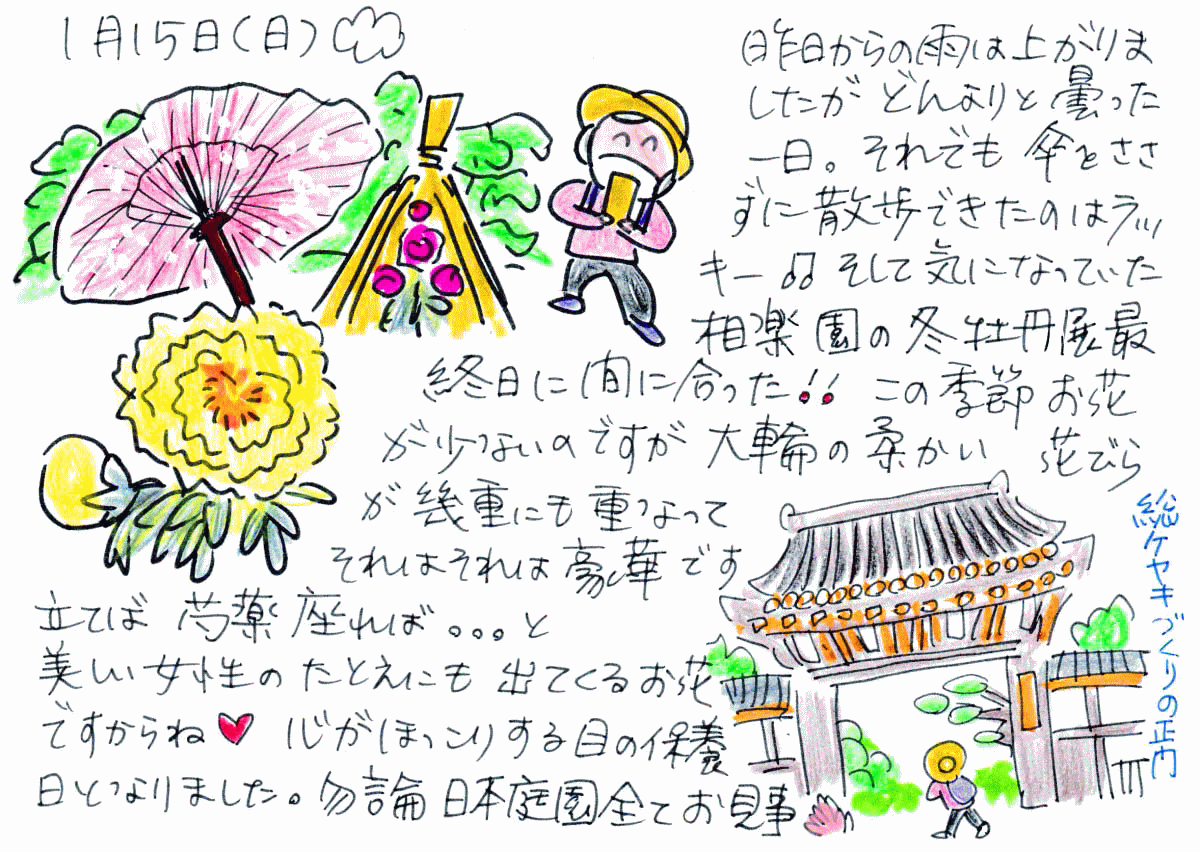 1月15日(日)
昨日からの雨は上がりま
したが どんよりと曇った
一日。それでも 傘をささ
ずに散歩できたのはラッ
キー♫ そして気になっていた
相楽園の冬牡丹展最
終日に間に合った!! この季節 お花
が少ないのですが 大輪の柔かい 花びら
が幾重にも重なって
それはそれは豪華です
立てば 芍薬 座れば 。。。と
美しい女性のたとえにも 出てくるお花
ですからね♥ 心がほっこりする目の保養
日となりました。勿論 日本庭園全てお見事
総ケヤキづくりの正門